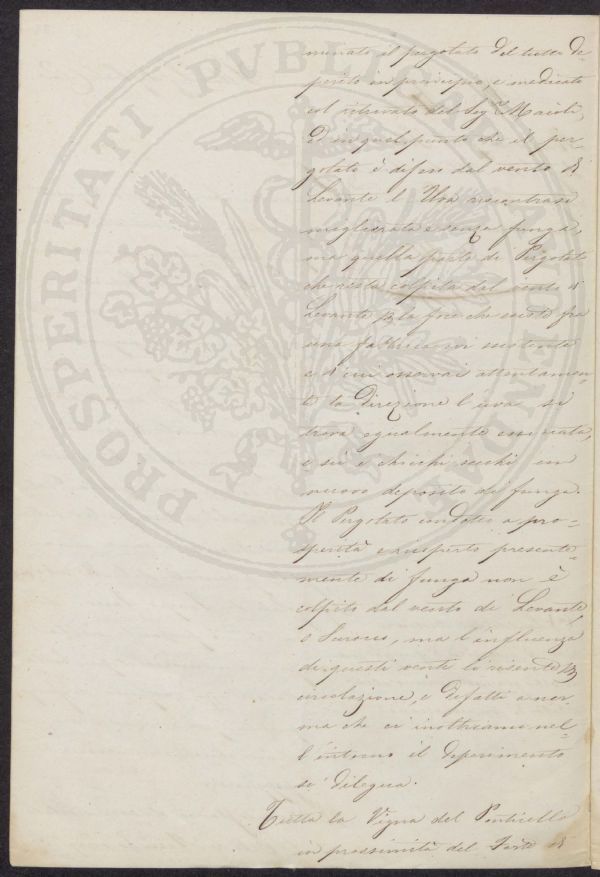 minato il pergolato del tutto de=
perito in principio, e medicato
col ritrovato del Sig.r Maioli,
È in quel punto che il per=
golato è difeso dal vento di
Levante l'Uva riscontrasi
migliorata e senza funga,
ma quella parte di Pergolato
che resta colpita dal vento di
Levante p la foce che esiste fra
una fabbrica ivi esistente
e di cui osservai attentamen=
te la Direzione l'uva si
trova egualmente
e su e chicchi secchi un
nuovo deposito di funga.
Il Pergolato condotto a pro=
sperità e cosperto presente=
mente di funga non è
colpito dal vento di Levante,
o Scirocco, ma l'influenza
di questi venti la risente p
circolazione, e difatti a nor=
ma che ci inoltriamo nel=
l'interno il deperimento
si dilegua.
Tutta la Vigna del Ponticello
in prossimità del Forte di
PROSPERITATI PVBLICAE AVGENDAE